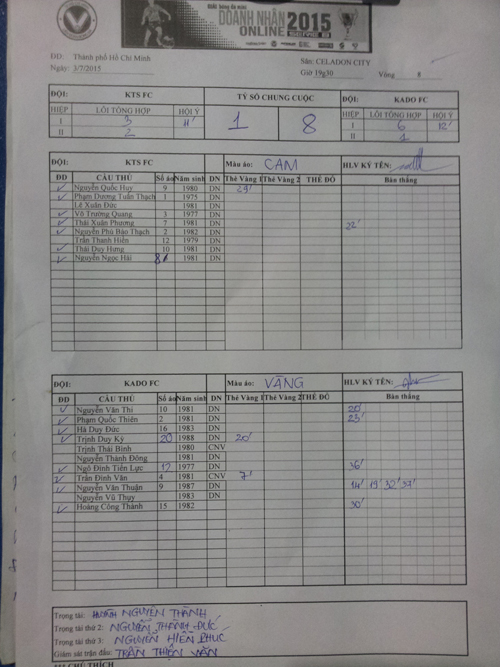 DOANH NHÂN 2015
ONLINE SERIE B
ĐĐ: Thành phố Hồ Chí Minh Sân: CELADON CITY
Ngày: 3/7/2015 Giờ 19g30 Vòng 8
ĐỘI: KTS FC TỶ SỐ CHUNG CUỘC ĐỘI: KADO FC
HIỆP LỖI TỔNG HỢP HỘI Ý 1 8 HIỆP LỖI TỔNG HỢP HỘI Ý
I 3 11' I 6 12'
II 2 II 1
ĐỘI: KTS FC Màu áo: CAM HLV KÝ TÊN:
ĐD CẦU THỦ Số áo Năm sinh DN Thẻ Vàng 1 Thẻ Vàng 2 THẺ ĐỎ Bàn thắng
Nguyễn Quốc Huy 9 1980 DN
Phạm Dương Tuấn Thạch 1 1975 DN
Lê Xuân Đức 1981 DN
Võ Trường Quang 3 1977 DN
Thái Xuân Phương 7 1981 DN 22'
Nguyễn Phú Bảo Thạch 2 1982 DN
Trần Thanh Hiền 12 1979 DN
Thái Duy Hưng 10 1981 DN
Nguyễn Ngọc Hải 8 1981 DN
ĐỘI: KADO FC Màu áo: VÀNG HLV KÝ TÊN:
ĐD CẦU THỦ Số áo Năm sinh DN Thẻ Vàng 1 Thẻ Vàng 2 THẺ ĐỎ Bàn thắng
Nguyễn Văn Thi 10 1981 DN 20'
Phạm Quốc Thiên 2 1981 DN 23'
Hà Duy Đức 16 1983 DN
Trịnh Duy Kỳ 20 1988 DN 20'
Trịnh Thái Bình 1980 CNV
Nguyễn Thành Đông 1981 DN
Ngô Đình Tiến Lực 17 1977 DN 36'
Trần Đình Văn 4 1981 CNV 7'
Nguyễn Văn Thuận 9 1987 DN 14' 19' 32' 37'
Nguyễn Vũ Thụy 1983 DN
Hoàng Công Thành 15 1982 30'
Trọng tài: HUỲNH NGUYỄN THÀNH
Trọng tài thứ 2: NGUYỄN THÀNH ĐỨC
Trọng tài thứ 3: NGUYỄN HIỀN PHÚC
Giám sát trận đấu: TRẦN THIỆN VĂN
CHÚ THÍCH